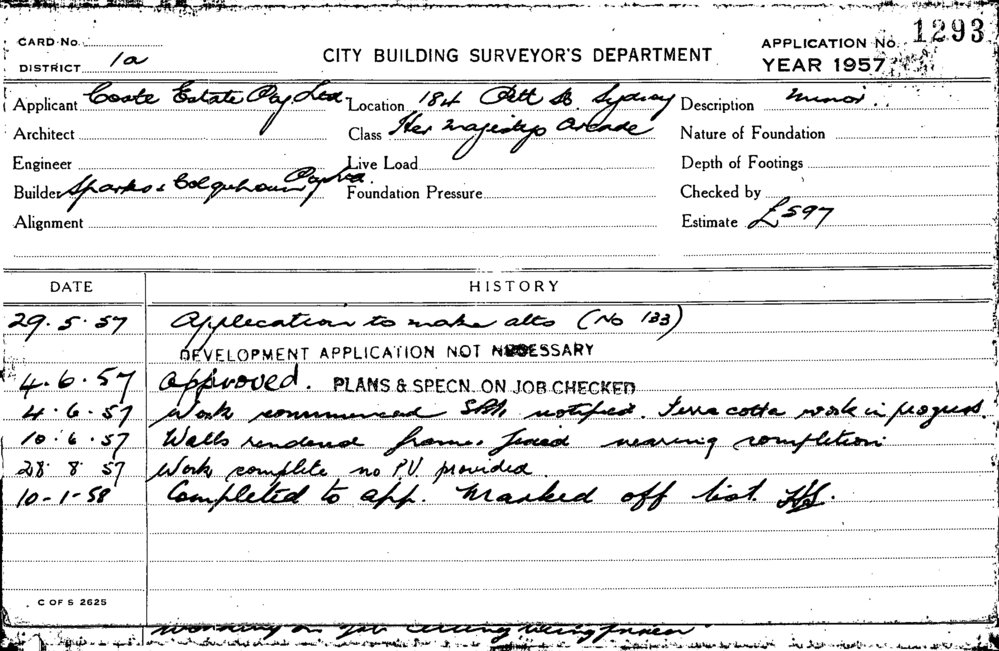 1293
CARD No.
CITY BUILDING SURVEYOR'S DEPARTMENT
APPLICATION No.
DISTRICT 1a
YEAR 1957
Applicant Coate Estate Pty Ltd Location 184 Pitt St. Sydney Description Minor.
Architect Class Her Majestys Arcade Nature of Foundation
Engineer Live Load Depth of Footings
Builder Sparks & Colquhoun Pty Ltd. Foundation Pressure Checked by
Alignment Estimate £597
DATE HISTORY
29.5.57 Application to make alts (No 133)
DEVELOPMENT APPLICATION NOT NECESSARY
4.6.57 Approved. PLANS & SPECN. ON JOB CHECKED
4.6.57 Work commenced notified. Terra cotta work in progress.
10.6.57 Walls rendered frames fixed nearing completion
28 8 57 Work complete no P.V. provided
10-1-58 Completed to app. Marked off list.
C OF S 2625
working on job ceiling being